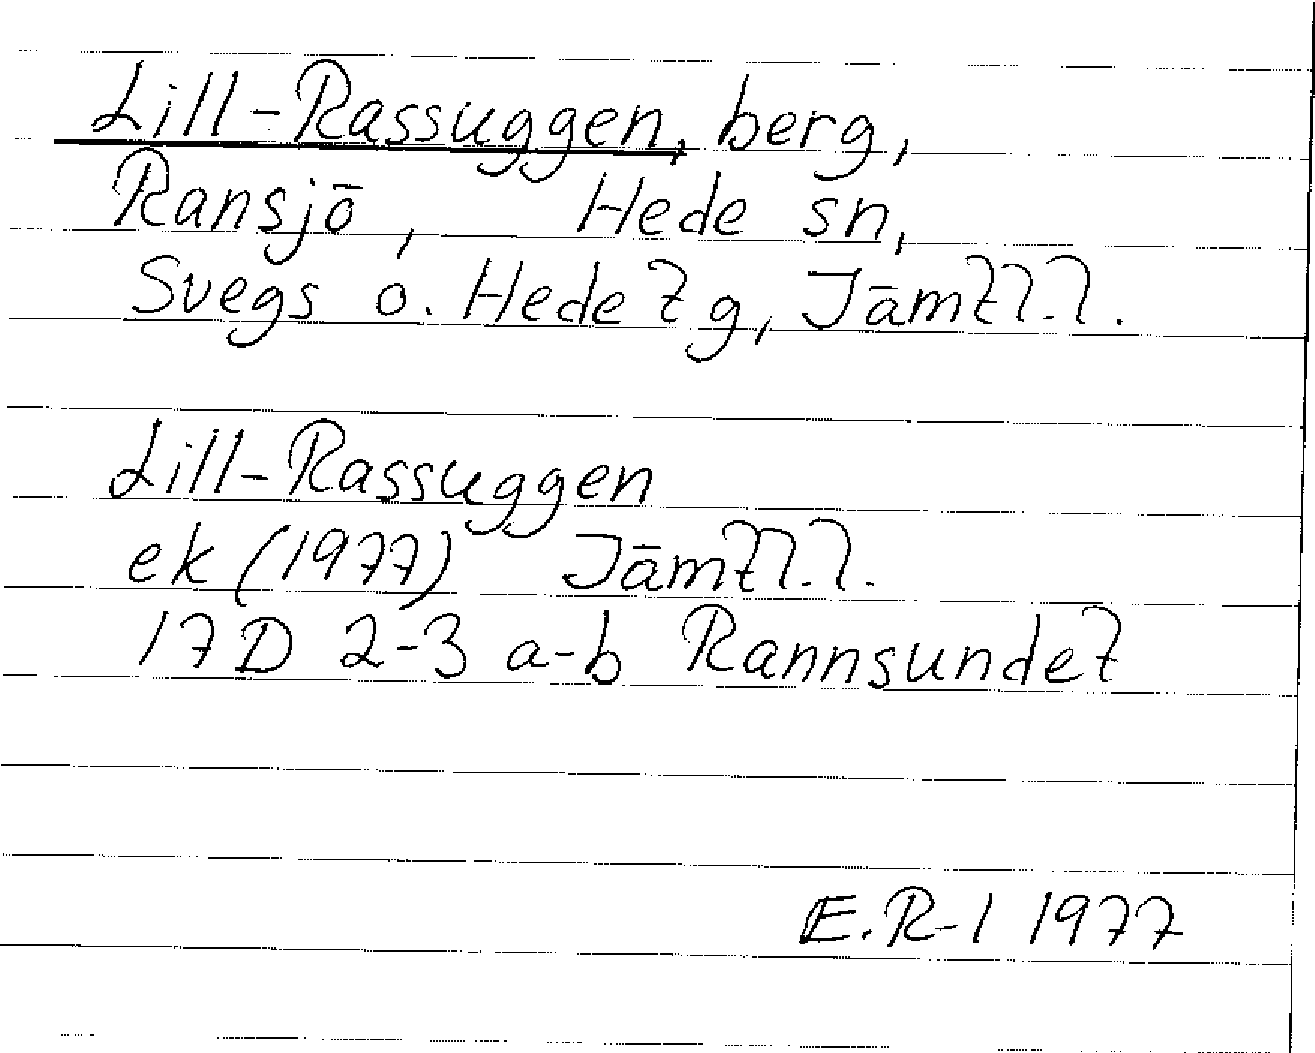 Lill-Rassuggen, berg,
Ransjö, Hede sn,
Svegs o. Hede tg, Jämtl.l.
Lill-Rassuggen
ek (1977) Jämtl.l.
17D 2-3 a-b Rannsundet
E.R-l 1977